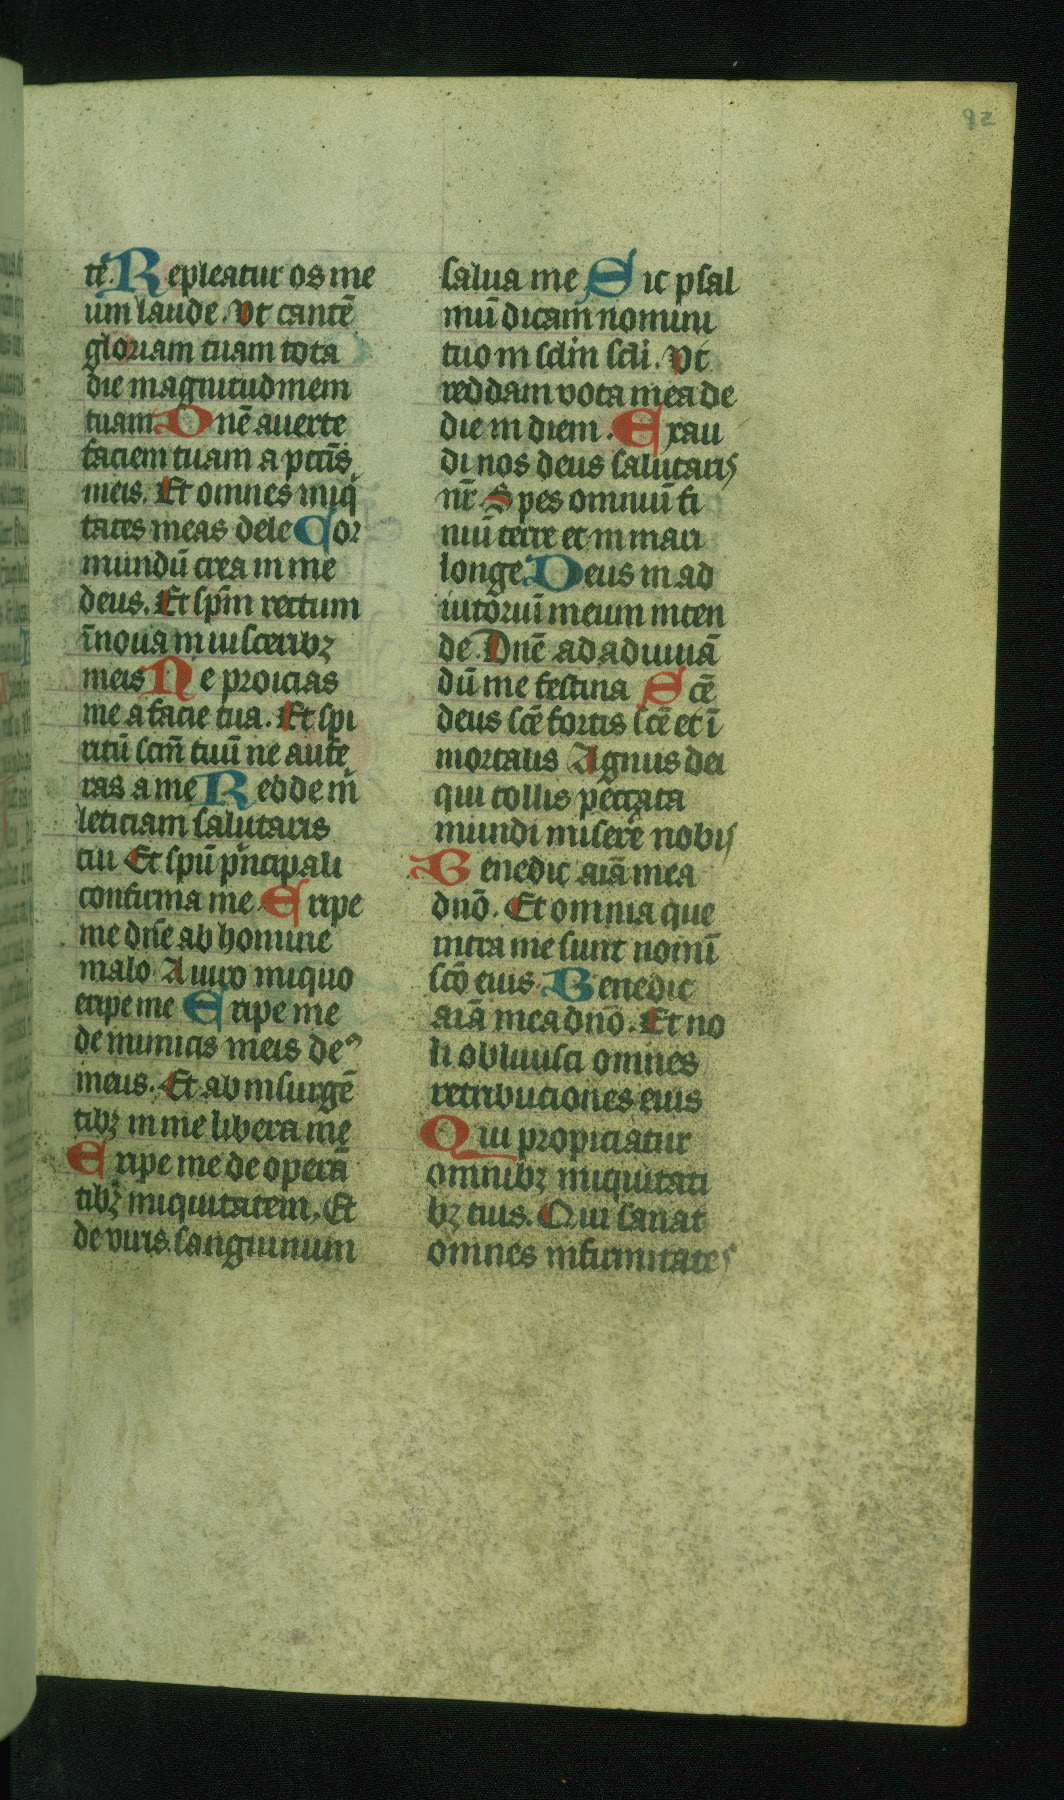 92
tē. Repleatur os me
um laude. Vt cantē
gloriam tuam tota
die magnitudinem
tuam Dnē auerte
faciem tuam a pctīs
meis. Et omnes iniq
tates meas dele Cor
mundū crea in me
deus. Et spm̄ rectum
īnoua in uisceribꝫ
meis Ne proicias
me a facie tua. Et spi
ritū scm̄ tuū ne aufe
ras a me Redde m̄
leticiam salutaris
tui Et spū pncipali
confirma me. Eripe
me dnē ab homine
malo. A uiro iniquo
eripe me Eripe me
de inimicis meis deꝰ
meus. Et ab insurgē
tibꝫ in me libera me
Eripe me de operā
tibꝫ iniquitatem. Et
de viris sanguinum
salua me Sic psal
mū dicam nomini
tuo in sclm̄ scli. Vt
reddam vota mea de
die in diem. Exau
di nos deus salutaris
nr̄ Spes omniū fi
niū terre et in mari
longe Deus in ad
iutoriū meum inten
de. Dnē ad adiuuā
dū me festina Scē
deus scē fortis scē et ī
mortalis Agnus dei
qui tollis peccata
mundi miserē nobis
Benedic aīā mea
dnō. Et omnia que
intra me sunt nomī
scō eius Benedic
aīā mea dnō. Et no
li obliuisci omnes
retribuciones eius
Qui propiciatur
omnibꝫ iniquitati
bꝫ tuis. Qui sanat
omnes infirmitates